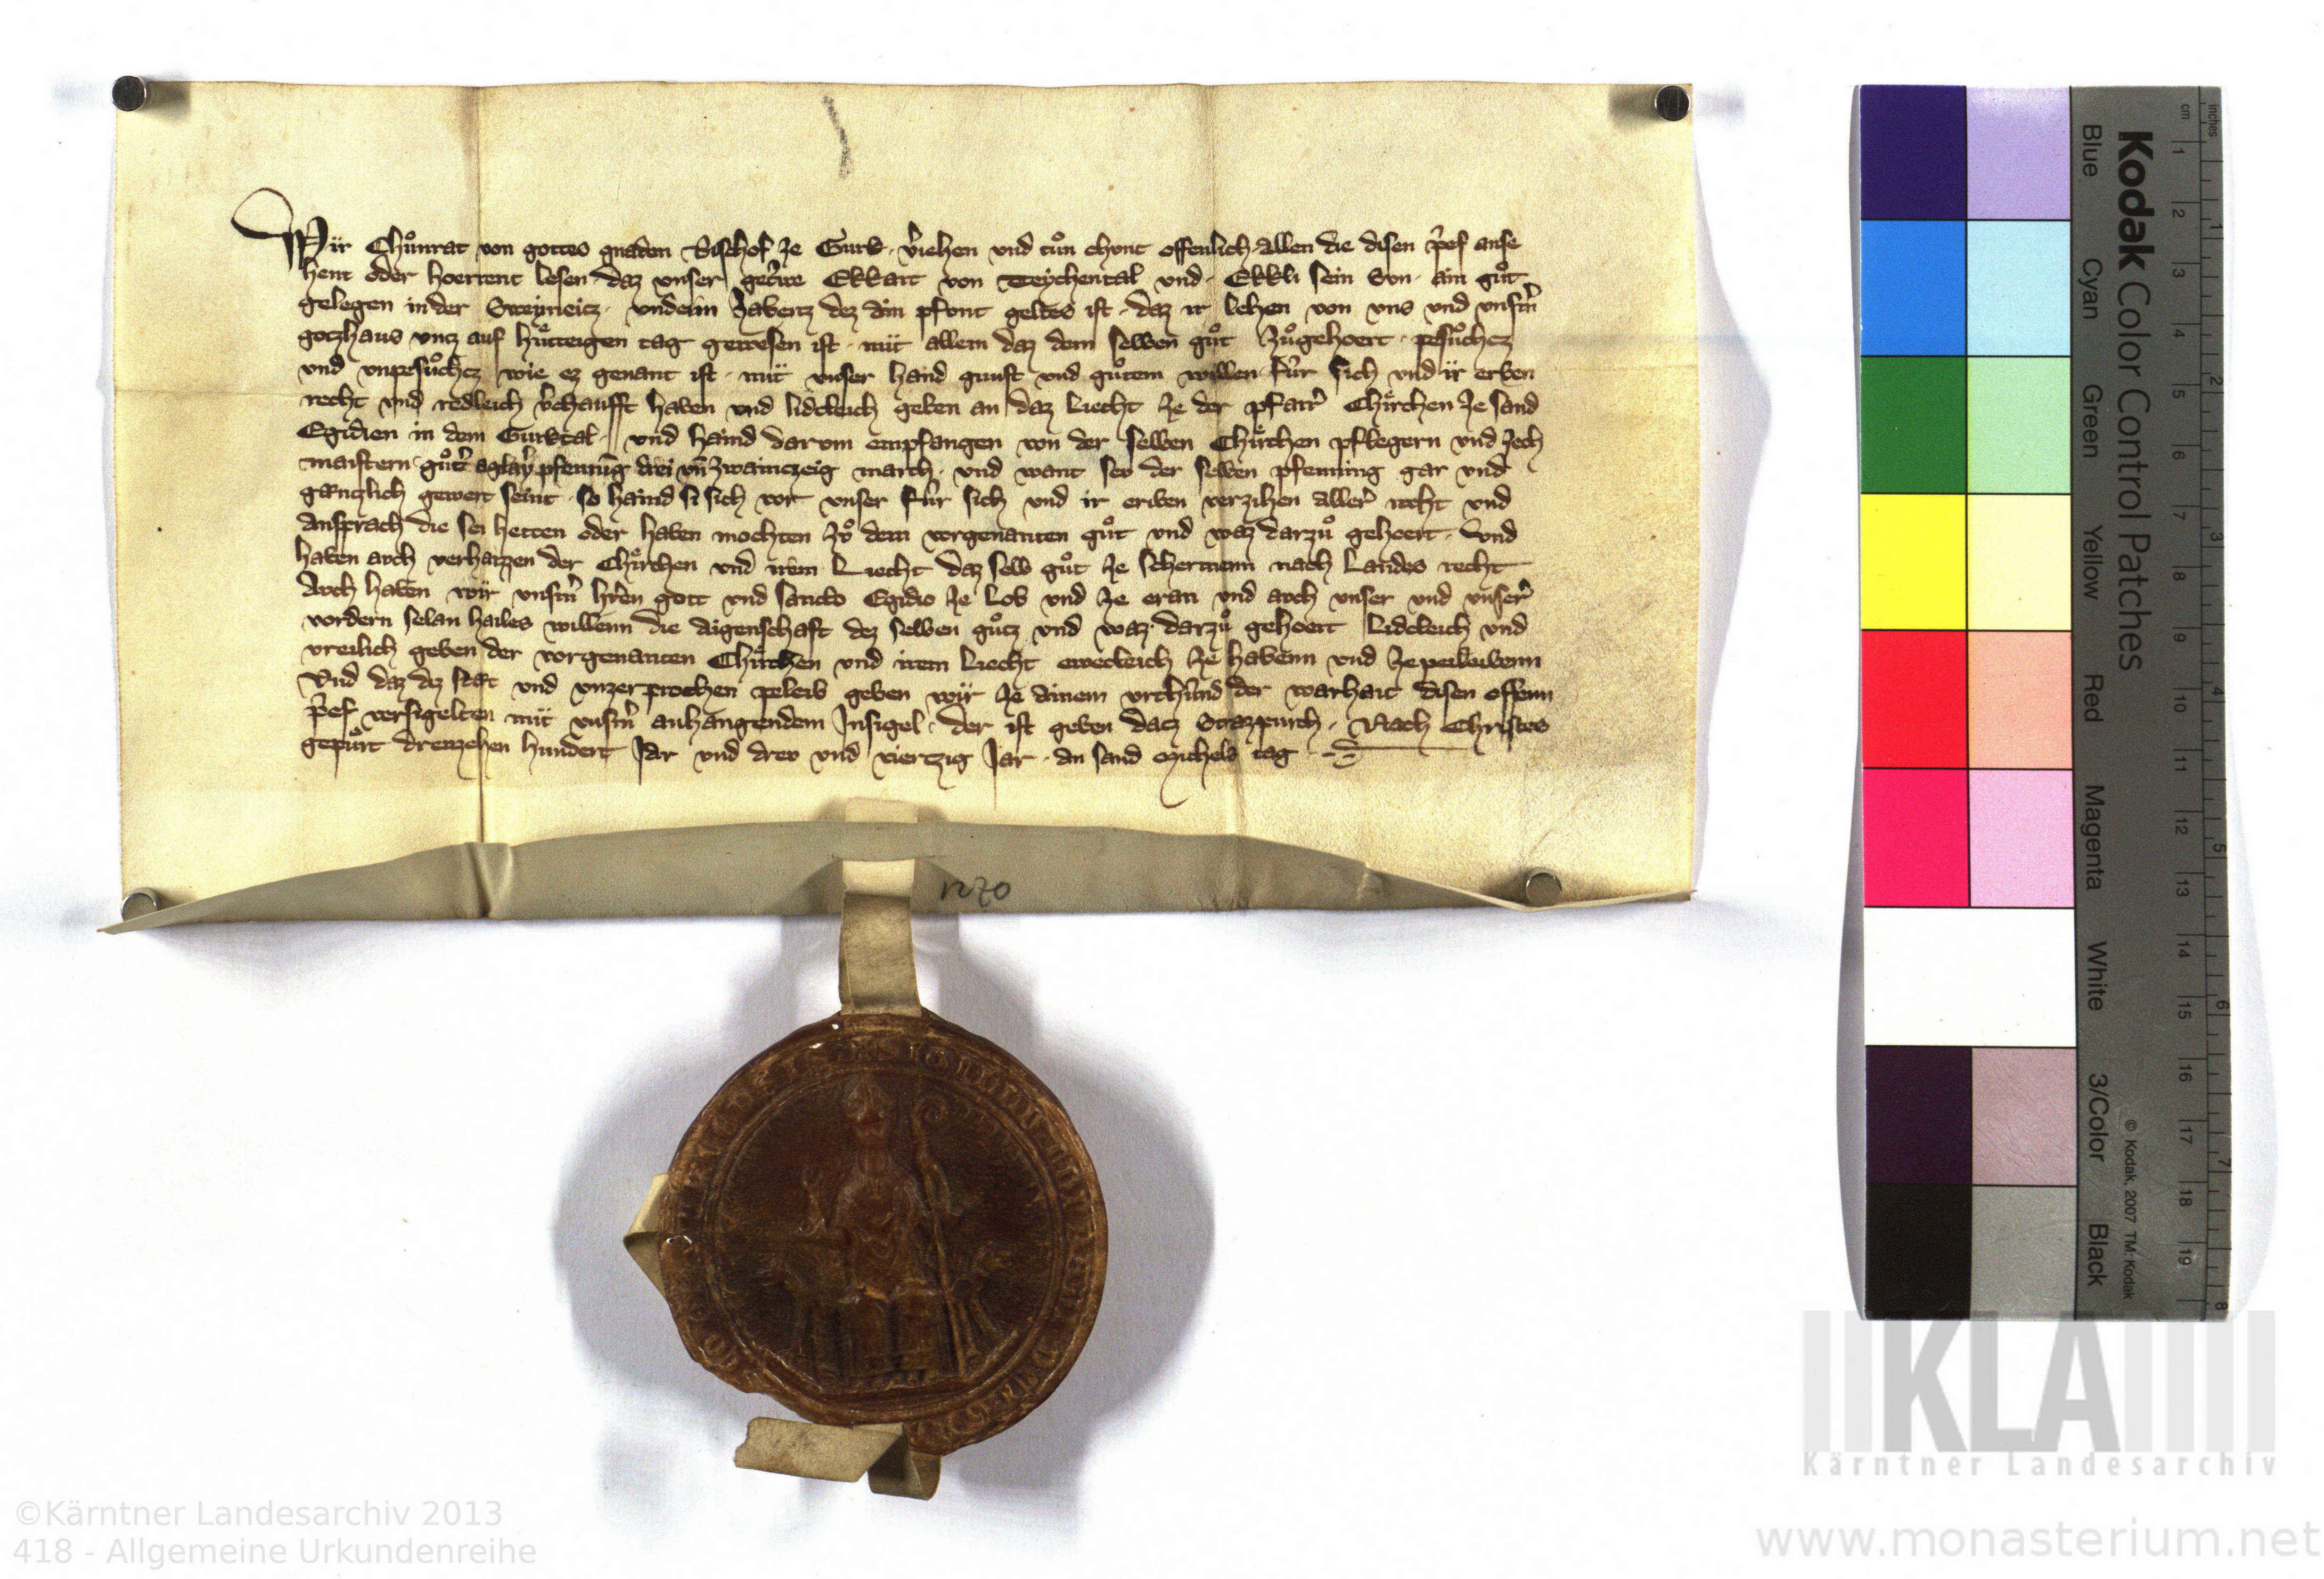 Wir Chůnrat von gottes gnaden Bischof ze Gurk · v̉iehen und tůn chunt offenlich allen die disen p̉ef anse
hent oder hoerrent lesen daz unser getrẘe Ekkart von Teychental und Ekkli sein Sun · ain gůt
gelegen in der Steymeicz · under im Jabencz dez ain pfunt geltes ist · daz ir lehen von uns und unsm̉
gotzhaus uncz auf hůtteigen tag gewesen ist · mit allem daz dem selben gůt zůgehoert · pesůchcz
und unpesůchcz wie ez genant ist · mit unser hand gunst und gůtem willen fůr sich und ir erben
recht und redleich v̉chaufft haben und lidcleich geben an daz Liecht ze der pfarr̉ Chirchen ze sand
Egidien in dem Gurktal · und haind darum empfangen von der selben Chirchen pflegern und zech
maistern gůt̉ aglaỷ pfenning drei vn̄ zwainczeig march · und want seu der selben pfenning gar und
gänczlich gewert seint · so haind si sich vor unser fůr sich und ir erben verzihen aller̉ recht und
ansprach die sei hetten oder haben mochten zů dem vorgenanten gůt und waz darzů gehoert · Und
haben auch verhaizzen der Chirchen und irem Liecht daz selb gůt ze schermenn nach Landes recht
Auch haben wir unsm̉ hr̉en gott und sancto Egidio ze Lob und ze eran und auch unser und unser̉
vordern selan hailes willenn die aigenschaft dez selben gůtz und waz darzů gehoert Lidcleich und
vreilich geben der vorgenanten Chirchen und irem Liecht ewecleich ze habenn und ze peleibenn
Und daz daz stät und unzerprochen peleib geben wir ze ainem urchůnd der warhait disen offenn
p̉ef versigelten mit unsm̉ anhangendem Insigel · der ist geben dacz Strazpurch · Nach Christes
gepůrt dreuzehen hundert Jar und dreu und viertzig Jar · an sand Michels tag
1270
Kodak Color Control Patches
Blue Cyan Green Yellow Red Magenta White 3/Color Black
© Kodak, 2007 TM: Kodak
cm 1 2 3 4 5 6 7 8 9 10 11 12 13 14 15 16 17 18 19
inches 1 2 3 4 5 6 7 8
KLA
Kärntner Landesarchiv
©Kärntner Landesarchiv 2013
418 - Allgemeine Urkundenreihe
www.monasterium.net